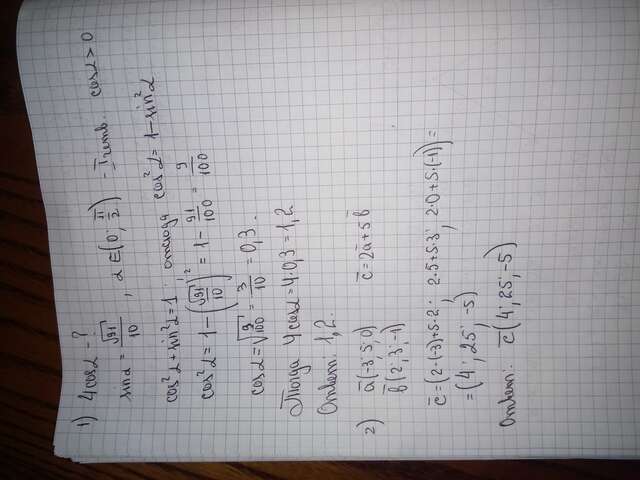 1) 4cosα - ?
sinα = √91/10 ; α∈(0; π/2) - I четв. cosα>0
cos²α + sin²α = 1 ; отсюда cos²α = 1 - sin²α
cos²α = 1 - (√91/10)² = 1 - 91/100 = 9/100
cosα = √9/100 = 3/10 = 0,3.
Тогда 4cosα = 4·0,3 = 1,2
Ответ. 1,2.
2) a(-3; 5; 0) c = 2a + 5b
b(2; 3; -1)
c = (2·(-3)+5·2 ; 2·5+5·3 ; 2·0+5·(-1)) =
= (4 ; 25 ; -5)
Ответ: c(4; 25; -5)